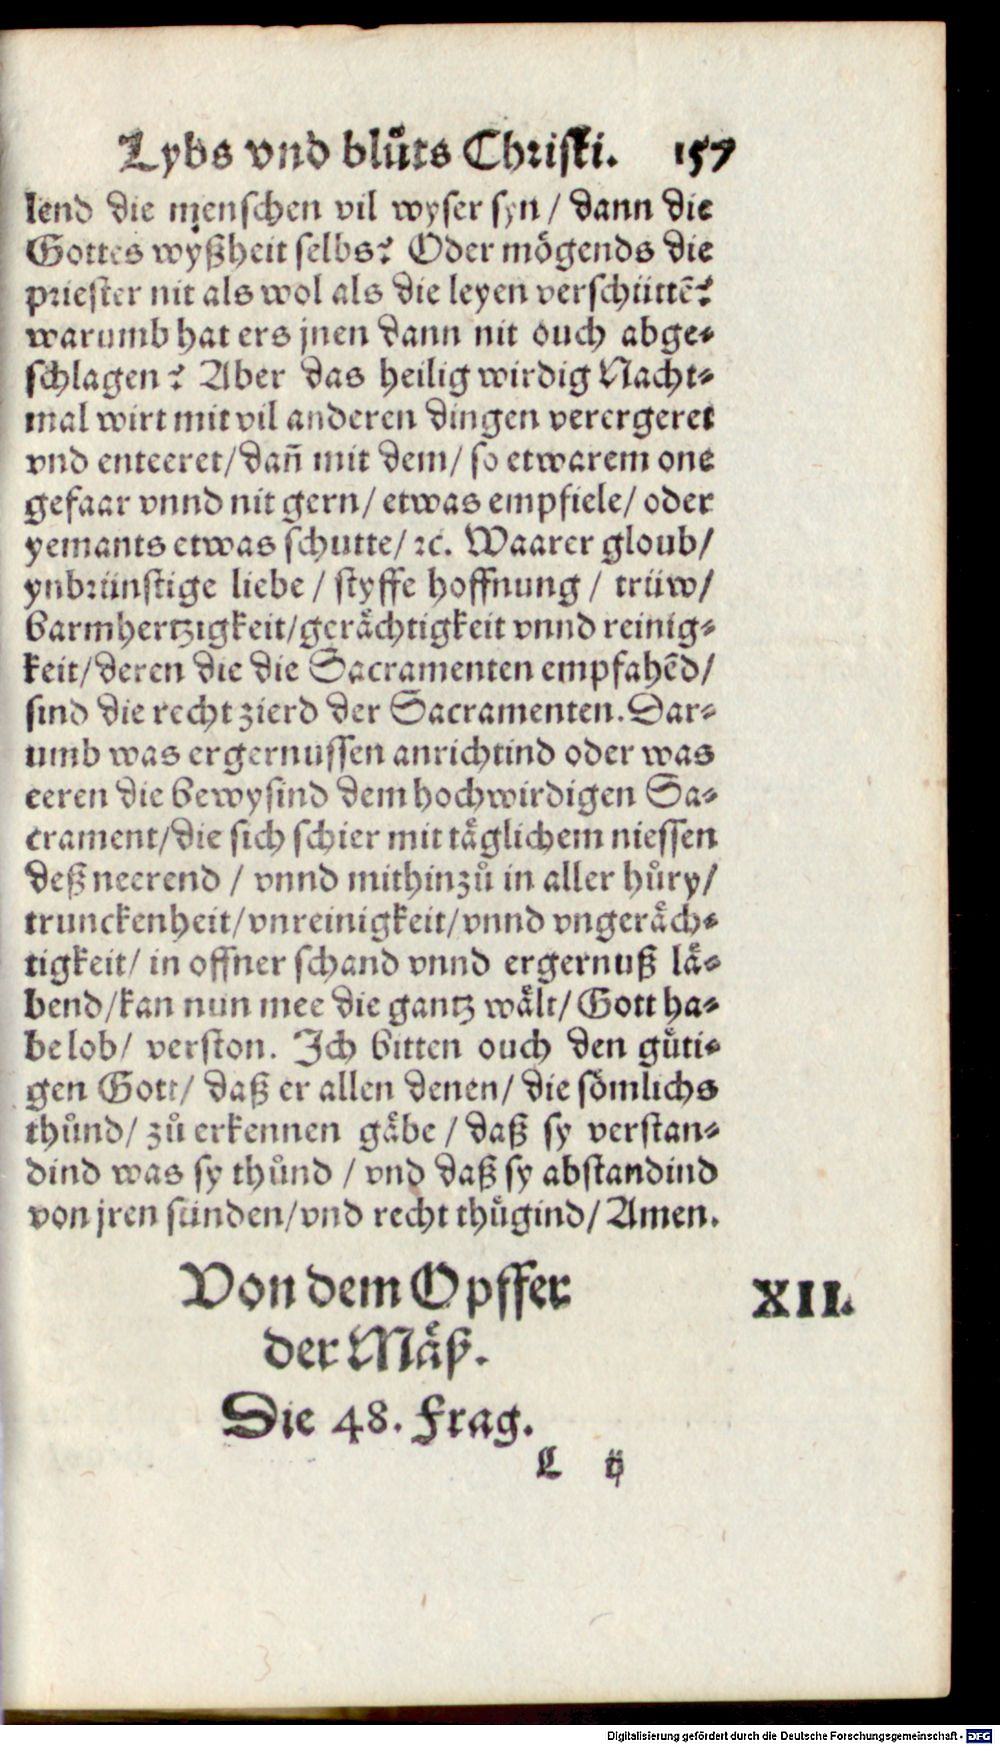 Lybs vnd blůts Christi. 157
lend die menschen vil wyser syn / dann die
Gottes wyßheit selbs? Oder mögends die
priester nit als wol als die leyen verschüttē?
warumb hat ers jnen dann nit ouch abge-
schlagen? Aber das heilig wirdig Nacht-
mal wirt mit vil anderen dingen verergeret
vnd enteeret/ dañ mit dem/ so etwarem one
gefaar vnnd nit gern/ etwas empfiele/ oder
yemants etwas schutte/ ꝛc. Waarer gloub/
ynbrünstige liebe / styffe hoffnung / trüw/
barmhertzigkeit/gerächtigkeit vnnd reinig-
keit/ deren die die Sacramenten empfahēd/
sind die recht zierd der Sacramenten. Dar-
umb was ergernussen anrichtind oder was
eeren die bewysind dem hochwirdigen Sa-
crament/die sich schier mit täglichem niessen
deß neerend / vnnd mithinzů in aller hůry/
trunckenheit/vnreinigkeit/vnnd vngeräch-
tigkeit/ in offner schand vnnd ergernuß lä-
bend/kan nun mee die gantz wält/ Gott ha-
be lob/ verston. Ich bitten ouch den gůti-
gen Gott/ daß er allen denen/ die sömlichs
thůnd/ zů erkennen gäbe / daß sy verstan-
dind was sy thůnd / vnd daß sy abstandind
von jren sünden/vnd recht thůgind/ Amen.
Von dem Opffer XII.
der Mäß.
Die 48. Frag.
L ij
Digitalisierung gefördert durch die Deutsche Forschungsgemeinschaft - DFG